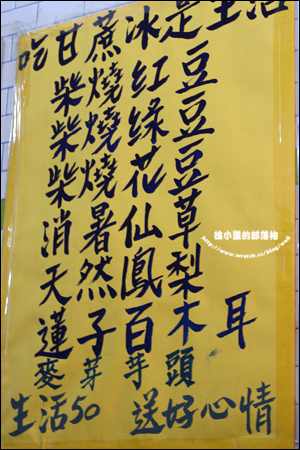 吃甘蔗冰是生活
柴燒紅豆
柴燒綠豆
柴燒花豆
消暑仙草
天然鳳梨
蓮子百木耳
麥芽芋頭
生活50 送好心情
徐小匯的部落格
http://www.wretch.cc/blog/wait